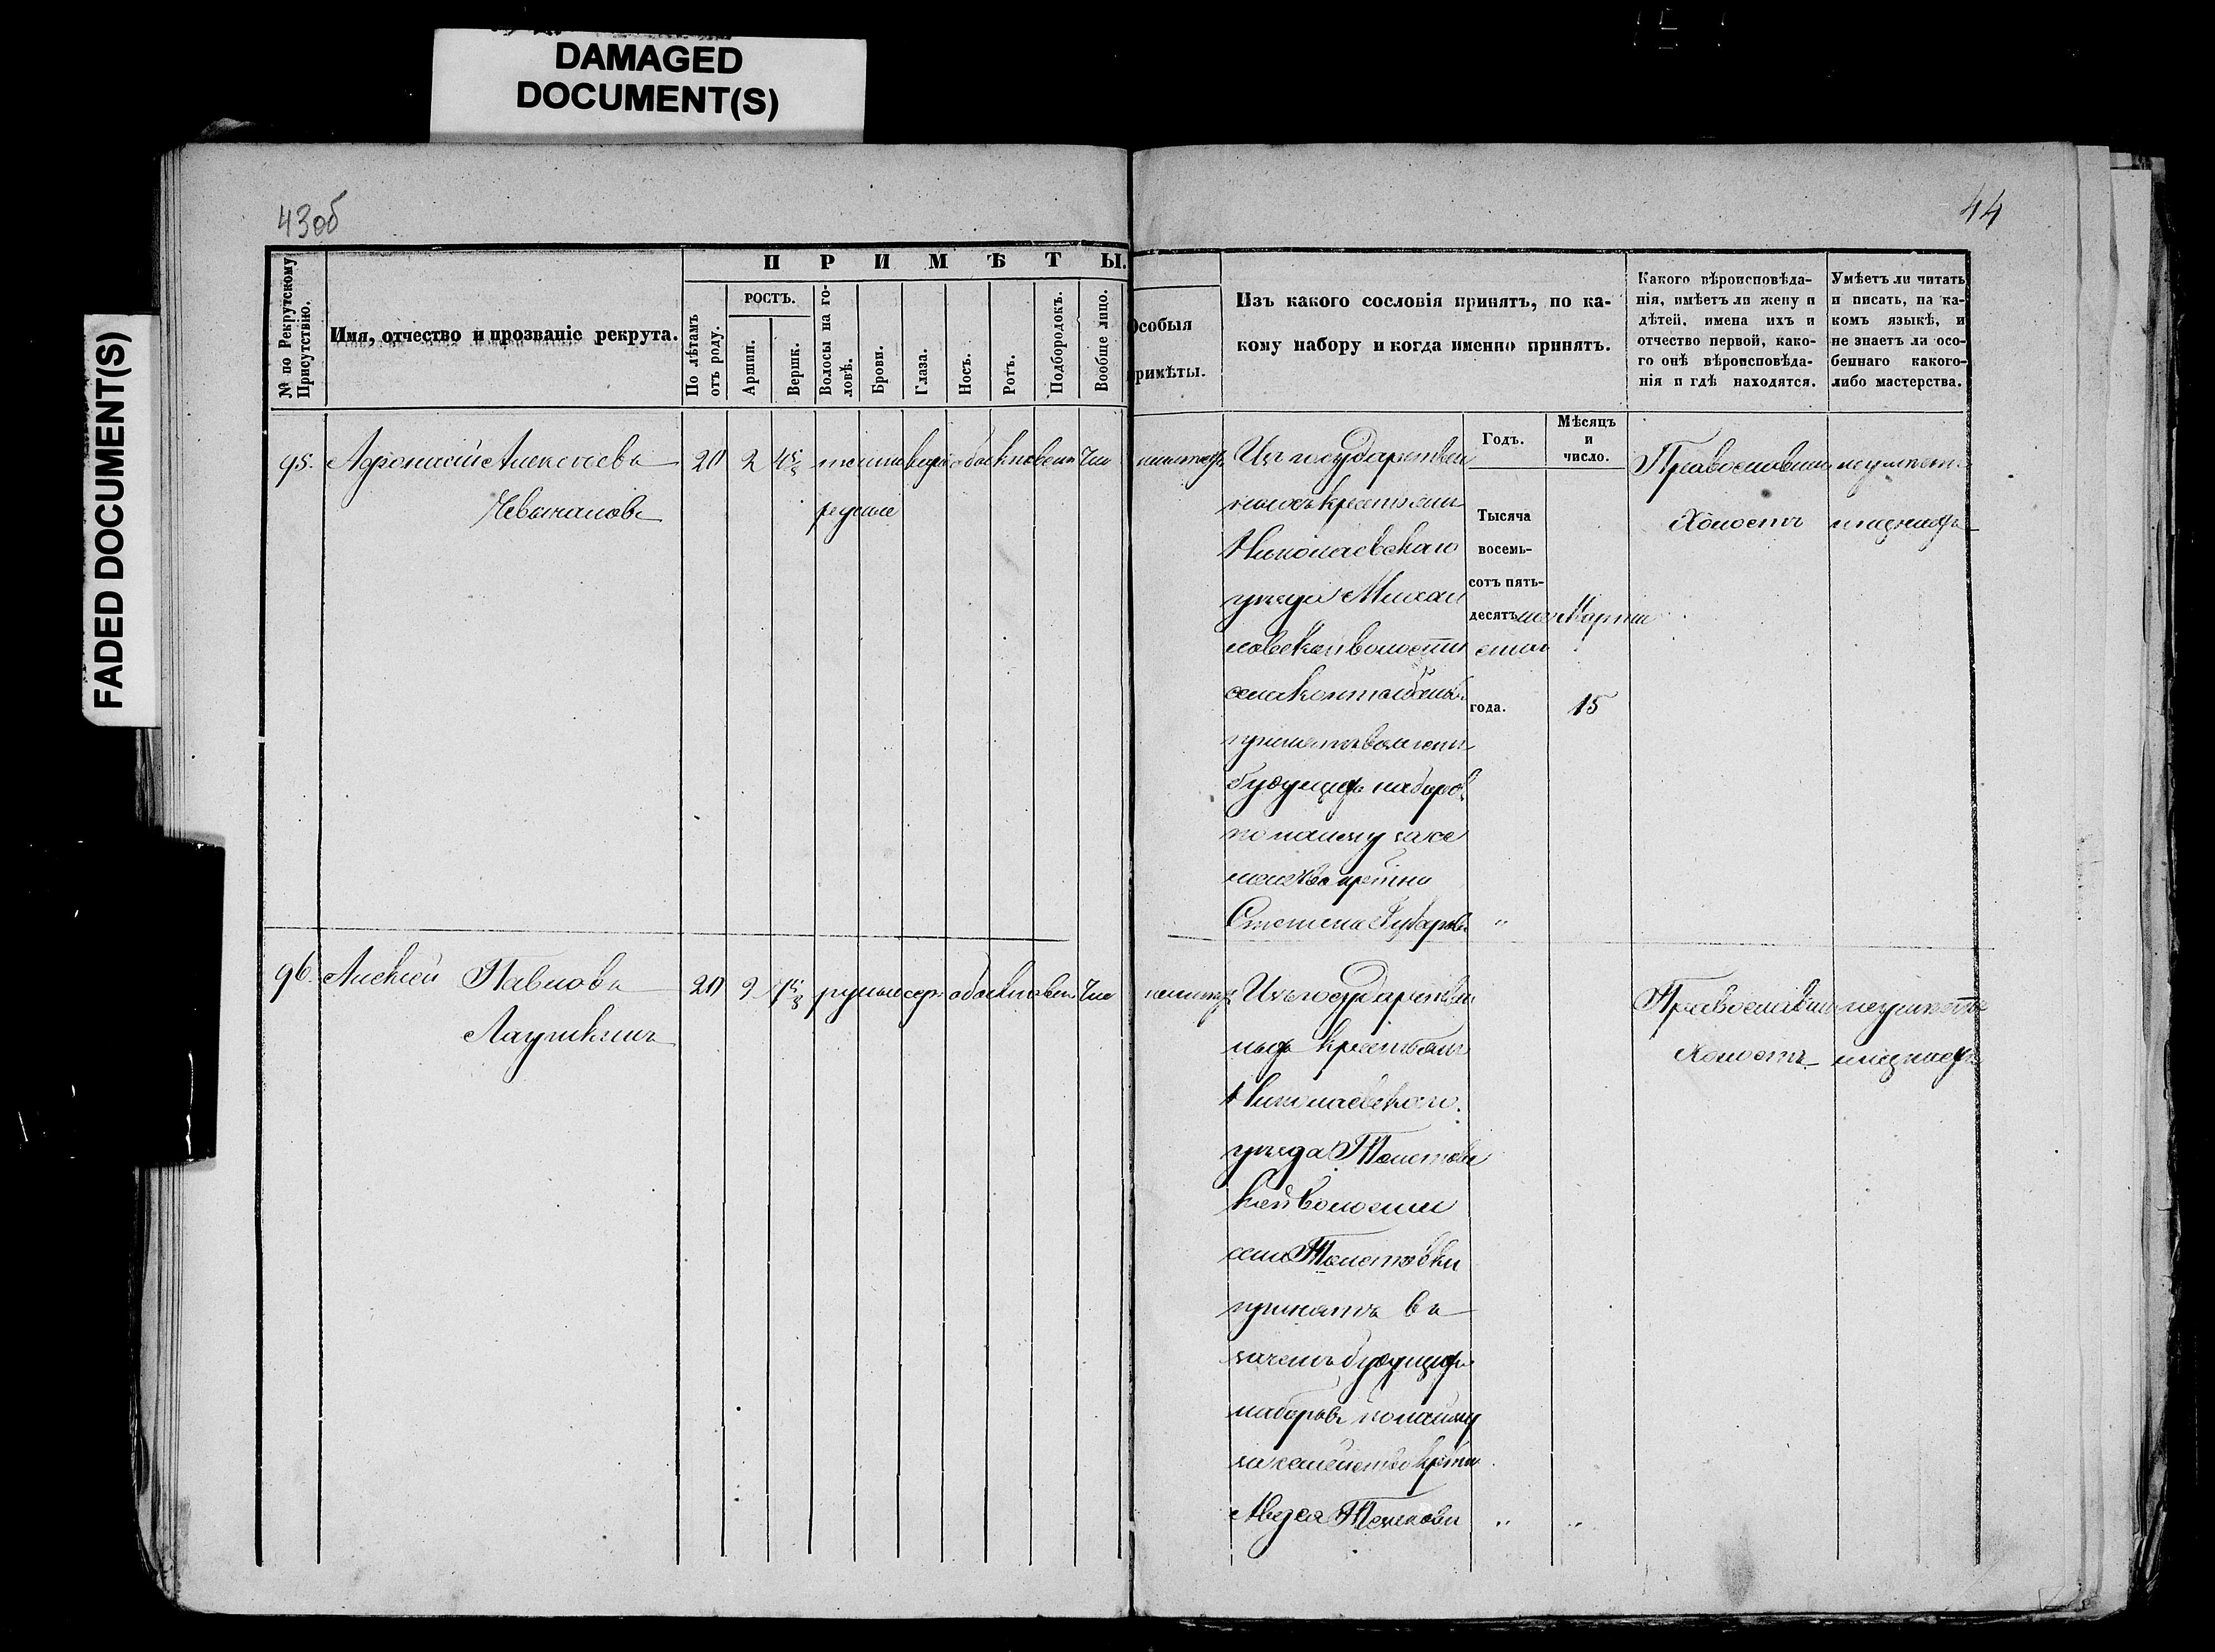 DAMAGED
DOCUMENT(S)
FADED DOCUMENT(S)
43об
44
№ по Рекрутскому
Присутствію.
Имя, отчество и прозваніе рекрута.
ПРИМѢТЫ.
По лѣтамъ
отъ роду.
РОСТЪ.
Аршин.
Вершк.
Волосы на го-
ловѣ.
Брови.
Глаза.
Носъ.
Ротъ.
Подбородокъ.
Вообще лицо.
Особыя
примѣты.
Изъ какого сословія принятъ, по ка-
кому набору и когда именно принятъ.
Какого вѣроисповѣда-
нія, имѣетъ ли жену и
дѣтей, имена ихъ и
отчество первой, како-
го онѣ вѣроисповѣда-
нія и гдѣ находятся.
Умѣетъ ли читать
и писать, на ка-
комъ языкѣ, и
не знаетъ ли осо-
беннаго какого-
либо мастерства.
Годъ.
Мѣсяцъ
и
число.
95. Афонасій Алексѣевъ 20 2 4 темно обыкновен
русые
Изъ государствен
ныхъ крестьянъ
Николаевскаго
уѣзда Михай
ловской волости
села
принятъ
будущихъ наборовъ
по найму за се
мейство крестьн
Степана
Тысяча
восемь-
сотъ пять-
десятъ
года.
Марта
15
Православный неумѣетъ
Холостъ
96. Алексѣй Павловъ 20 2 русые сер. обыкновен
Изъ государствен
ныхъ крестьянъ
Николаевскаго
уѣзда Толстовс
кой волости
села Толстовки
принятъ въ
зачетъ будущихъ
наборовъ по найму
за семейство
Православный неумѣетъ
Холостъ